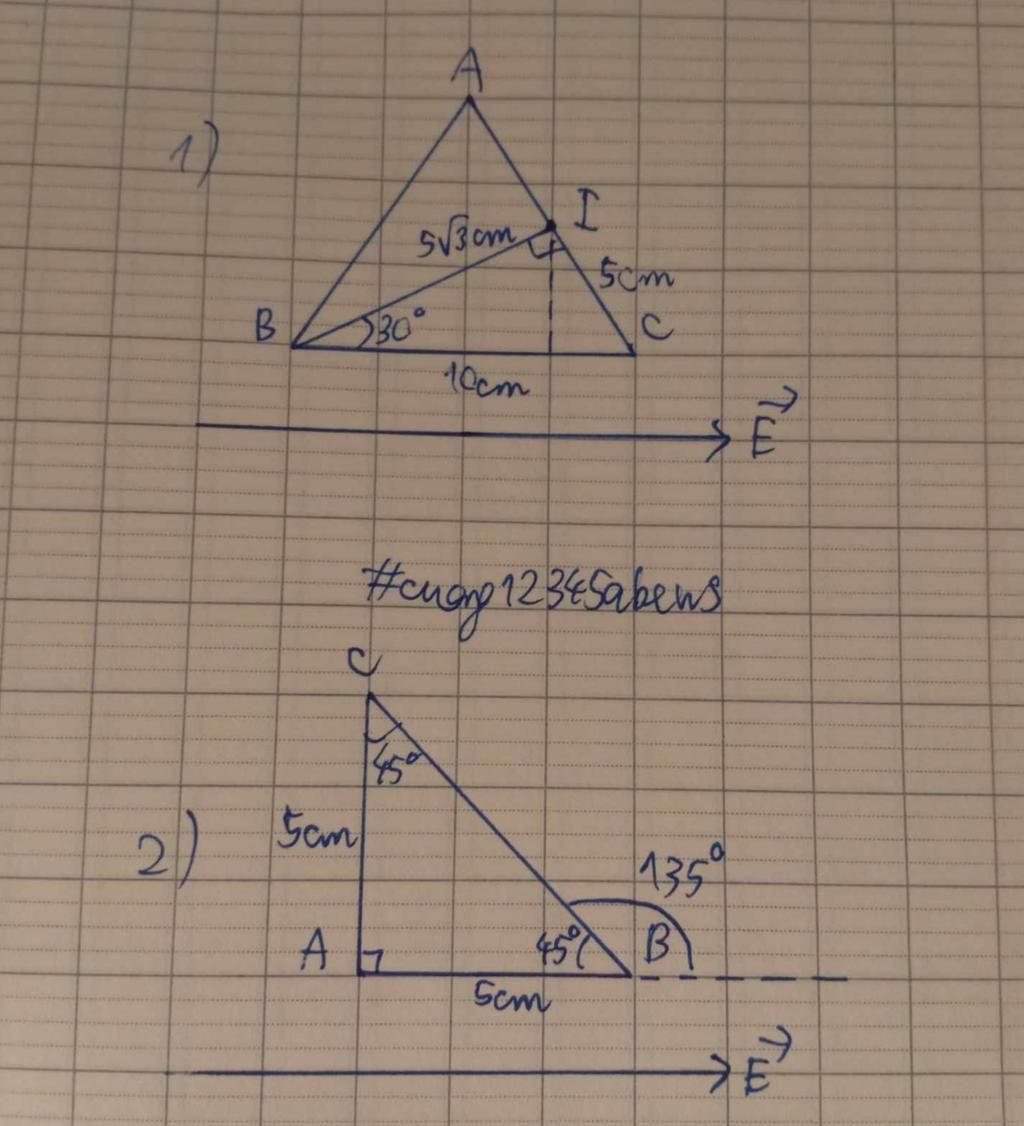 A
1)
I
5√3cm
5cm
B
30°
C
10cm
E
#cuong12345abews
C
45°
2)
5cm
135°
A
45°
B
5cm
E